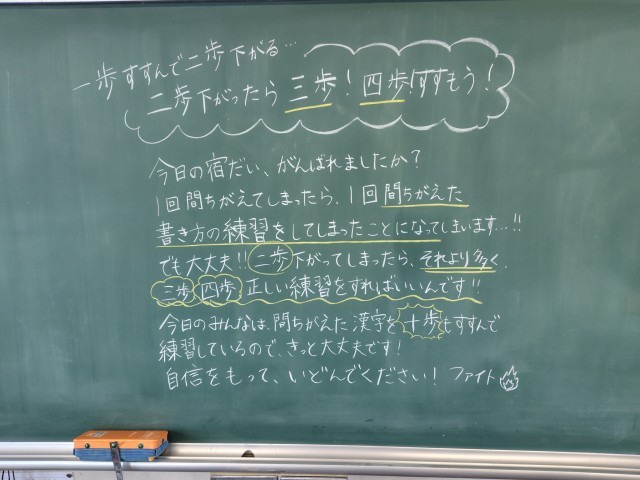 一歩すすんで二歩下がる…
二歩下がったら三歩！四歩！すすもう！
今日の宿だい、がんばれましたか？
1回間ちがえてしまったら、1回間ちがえた
書き方の練習をしてしまったことになってしまいます…!!
でも大丈夫!!二歩下がってしまったら、それより多く、
三歩四歩正しい練習をすればいいんです!!
今日のみんなは、間ちがえた漢字を十歩もすすんで
練習しているので、きっと大丈夫です！
自信をもって、いどんでください！ファイト